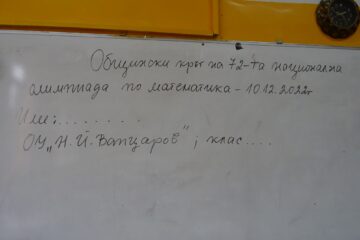 Общински кръг на 72-та национална
олимпиада по математика - 10.12.2022г
Име:........
ОУ „Н.Й. Вапцаров"; клас....